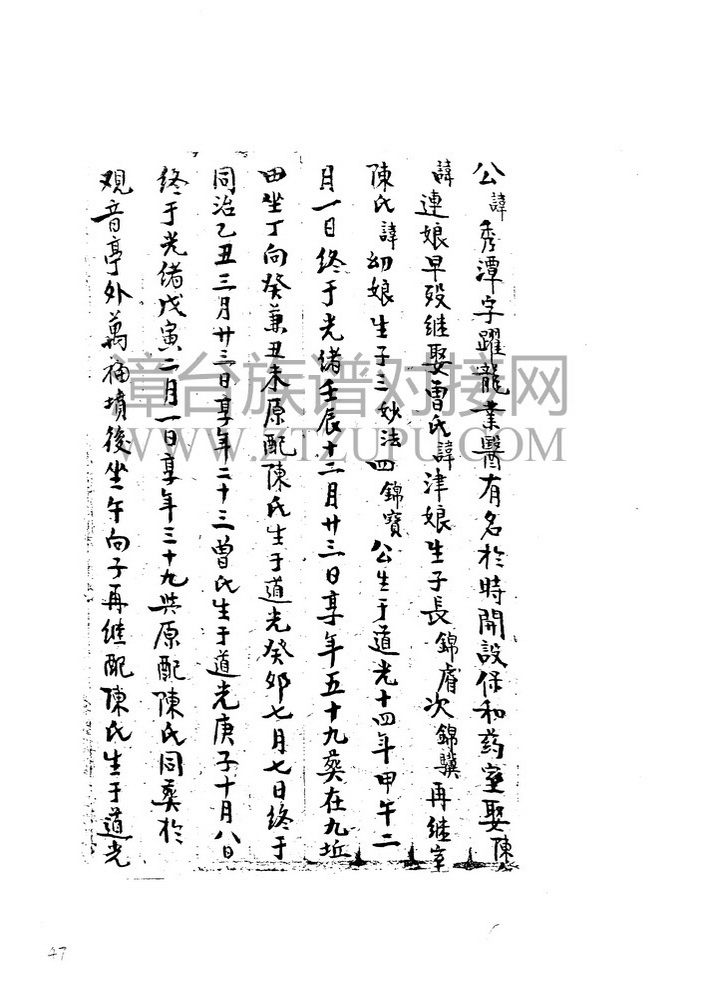 公諱秀潭字躍龍業醫有名於時開設保和药室娶陳
諱連娘早殁继娶曹氏諱津娘生子長錦膺次錦驥再继室
陳氏諱幼娘生子三妙法四錦寶公生于道光十四年甲午二
月一日终于光緒壬辰十二月廿三日享年五十九葬在九坵
田坐丁向癸兼丑未原配陳氏生于道光癸卯七月七日终于
同治乙丑三月廿三日享年二十三曾氏生于道光庚子十月八日
终于光緒戊寅二月一日享年三十九與原配陳氏同葬於
观音亭外萬福墳後坐午向子再继配陳氏生于道光
漳台族谱对接网
WWW.ZTZUPU.COM
47